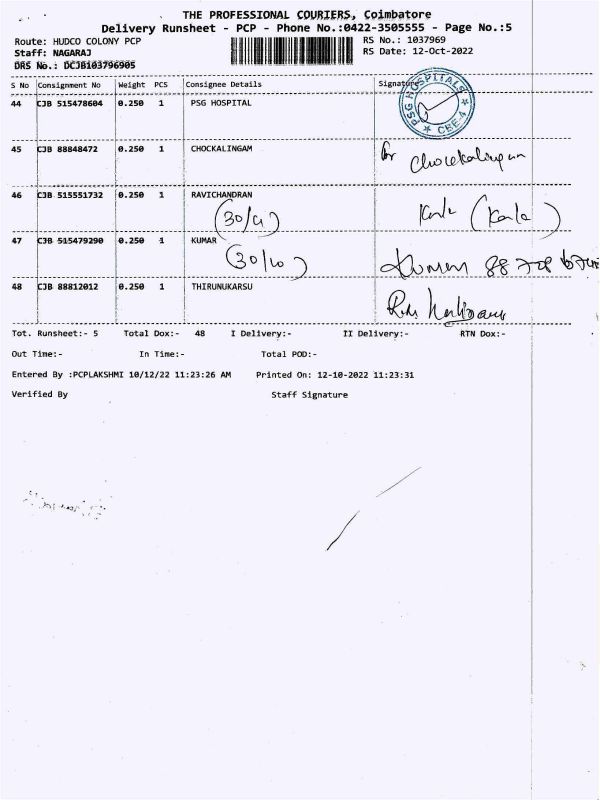 THE PROFESSIONAL COURIERS, Coimbatore
Delivery Runsheet - PCP - Phone No.:0422-3505555 - Page No.:5
Route: HUDCO COLONY PCP RS No.: 1037969
Staff: NAGARAJ RS Date: 12-Oct-2022
DRS No.: DCJB103796905
S No Consignment No Weight PCS Consignee Details Signature
44 CJB 515478604 0.250 1 PSG HOSPITAL
PSG HOSPITALS CBE-4
45 CJB 88848472 0.250 1 CHOCKALINGAM
for Chockalingam
46 CJB 515551732 0.250 1 RAVICHANDRAN
(30/4) Kala (Kala)
47 CJB 515479290 0.250 1 KUMAR
(30/10) Kumar
48 CJB 88812012 0.250 1 THIRUNUKARSU
Tot. Runsheet:- 5 Total Dox:- 48 I Delivery:- II Delivery:- RTN Dox:-
Out Time:- In Time:- Total POD:-
Entered By :PCPLAKSHMI 10/12/22 11:23:26 AM Printed On: 12-10-2022 11:23:31
Verified By Staff Signature